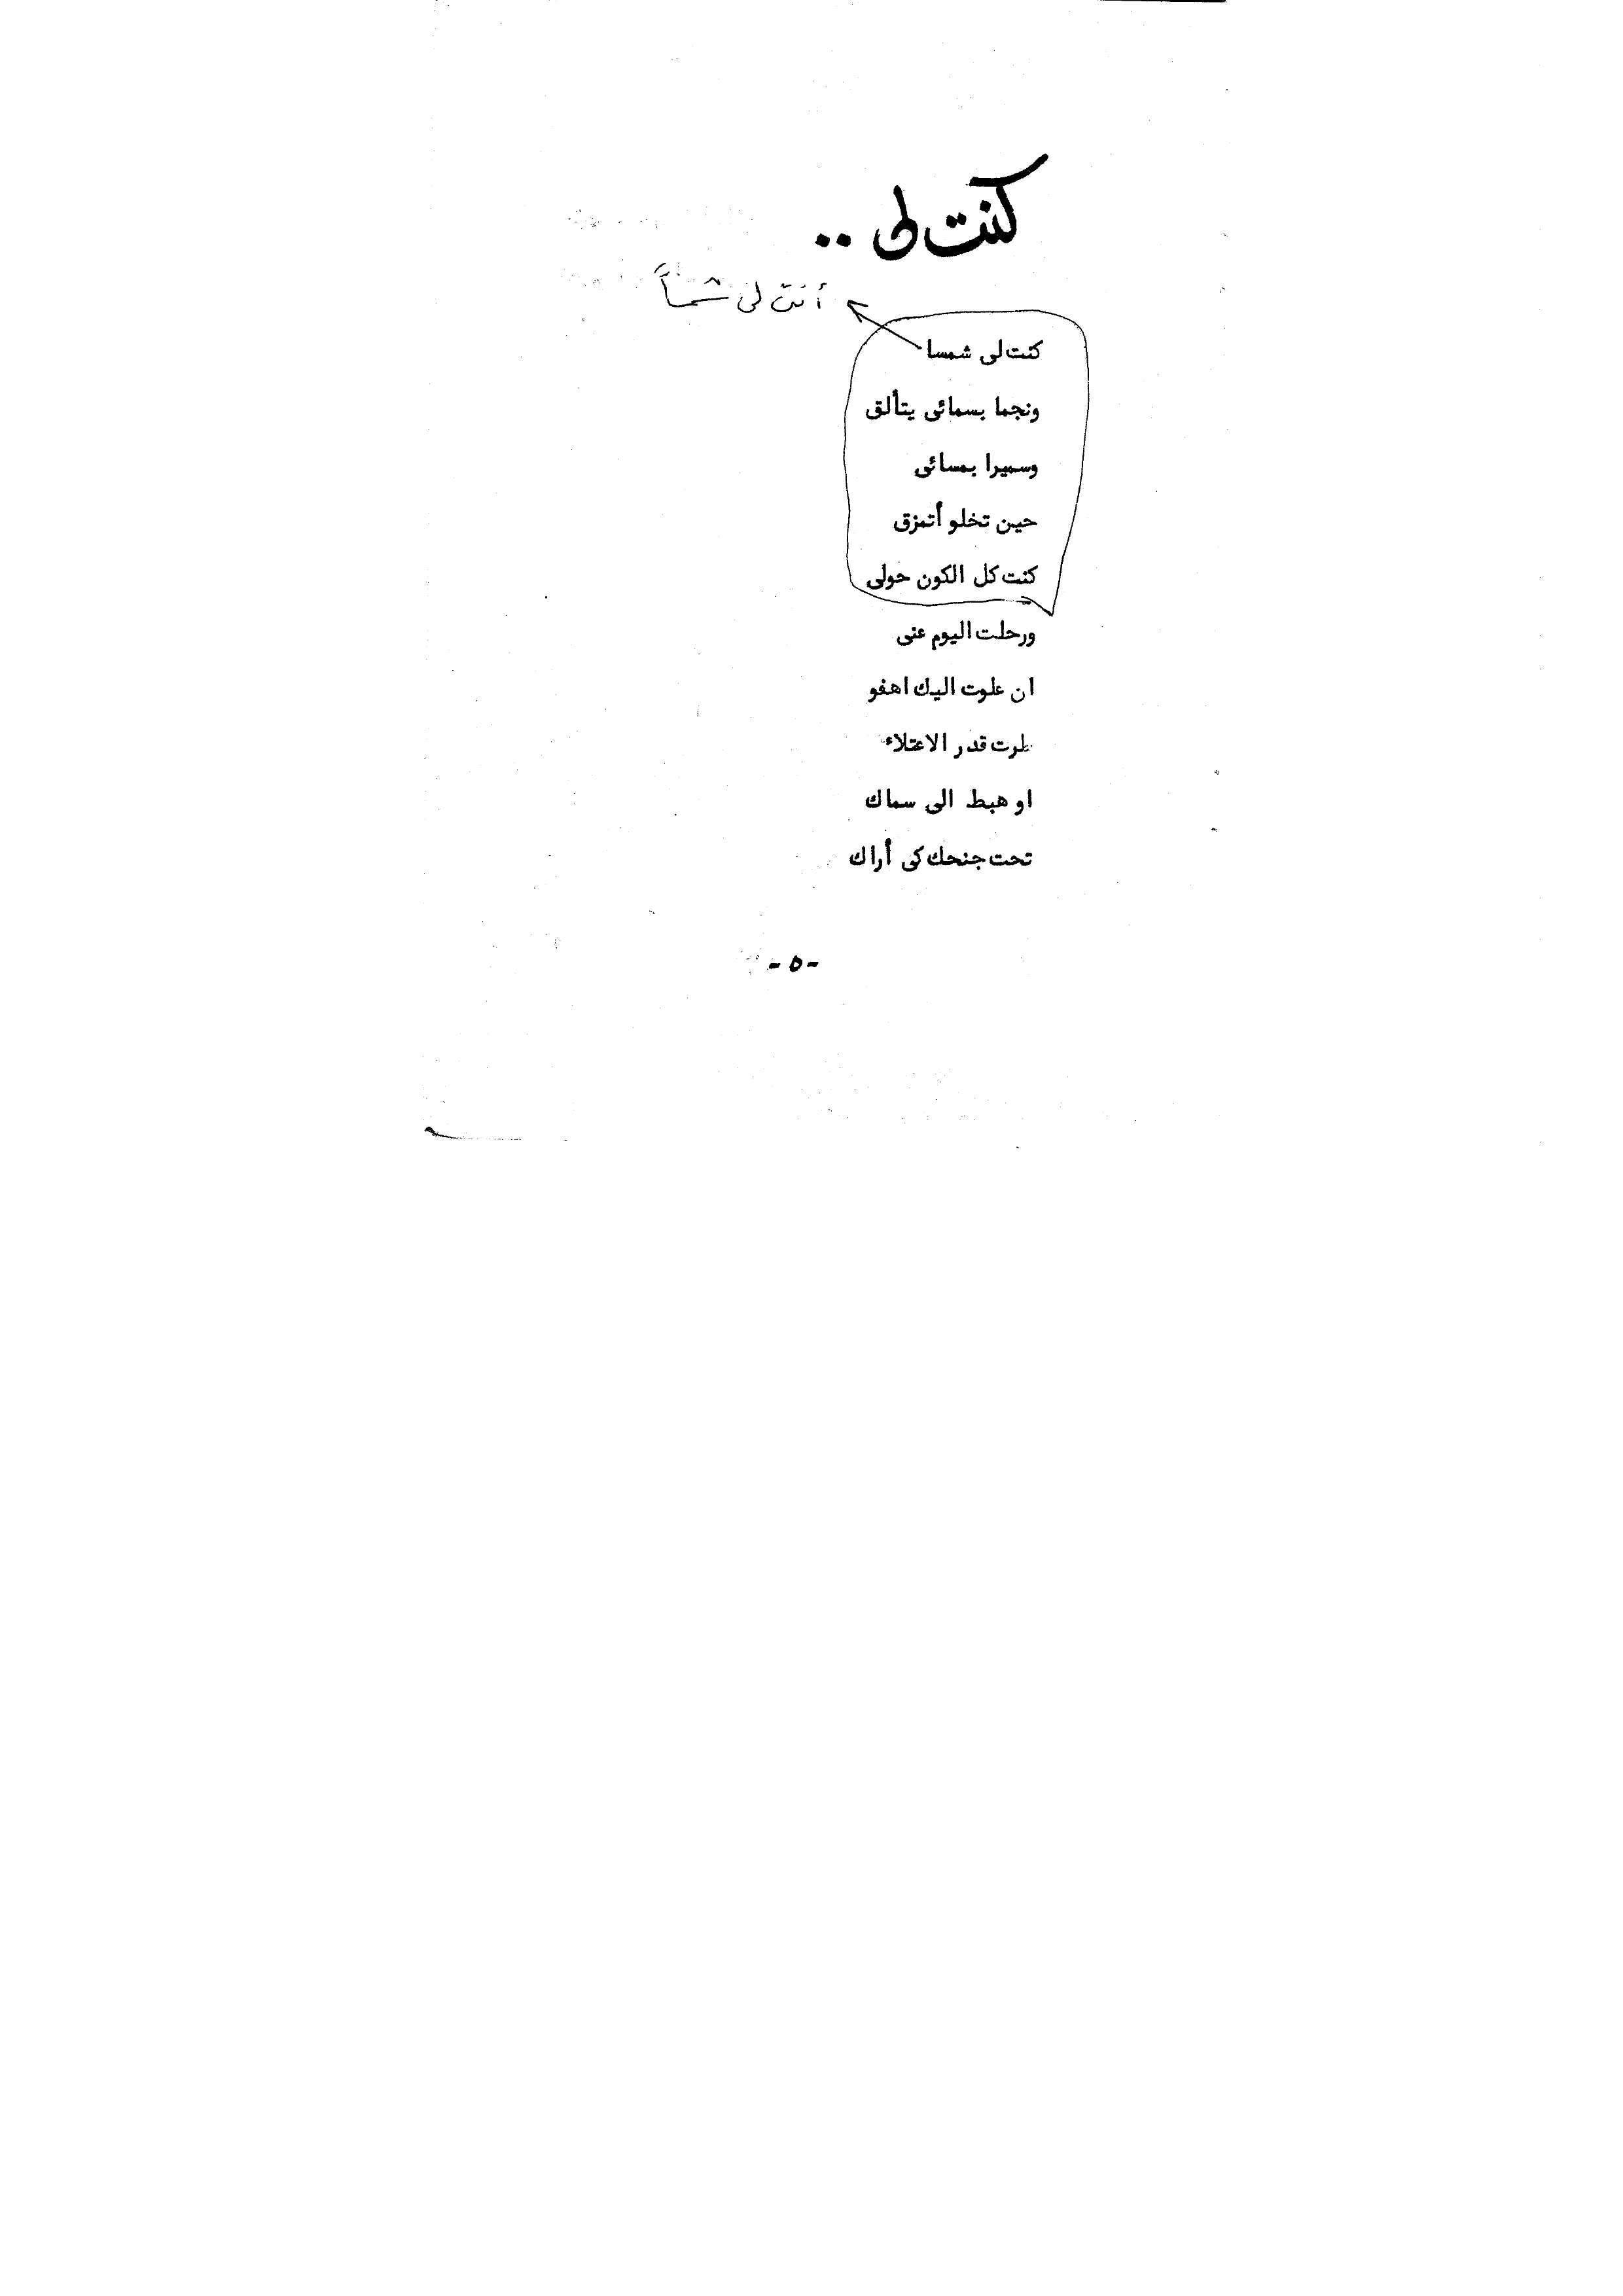 كنت لى ..
أنت لى شمساً
كنت لى شمسا
ونجما بسمائى يتألق
وسميرا بمسائى
حين تخلو أتمزق
كنت كل الكون حولى
ورحلت اليوم عنى
ان علوت اليك اهفو
طرت قدر الاعتلاء
او هبط الى سماك
تحت جنحك كى أراك
- ٥ -